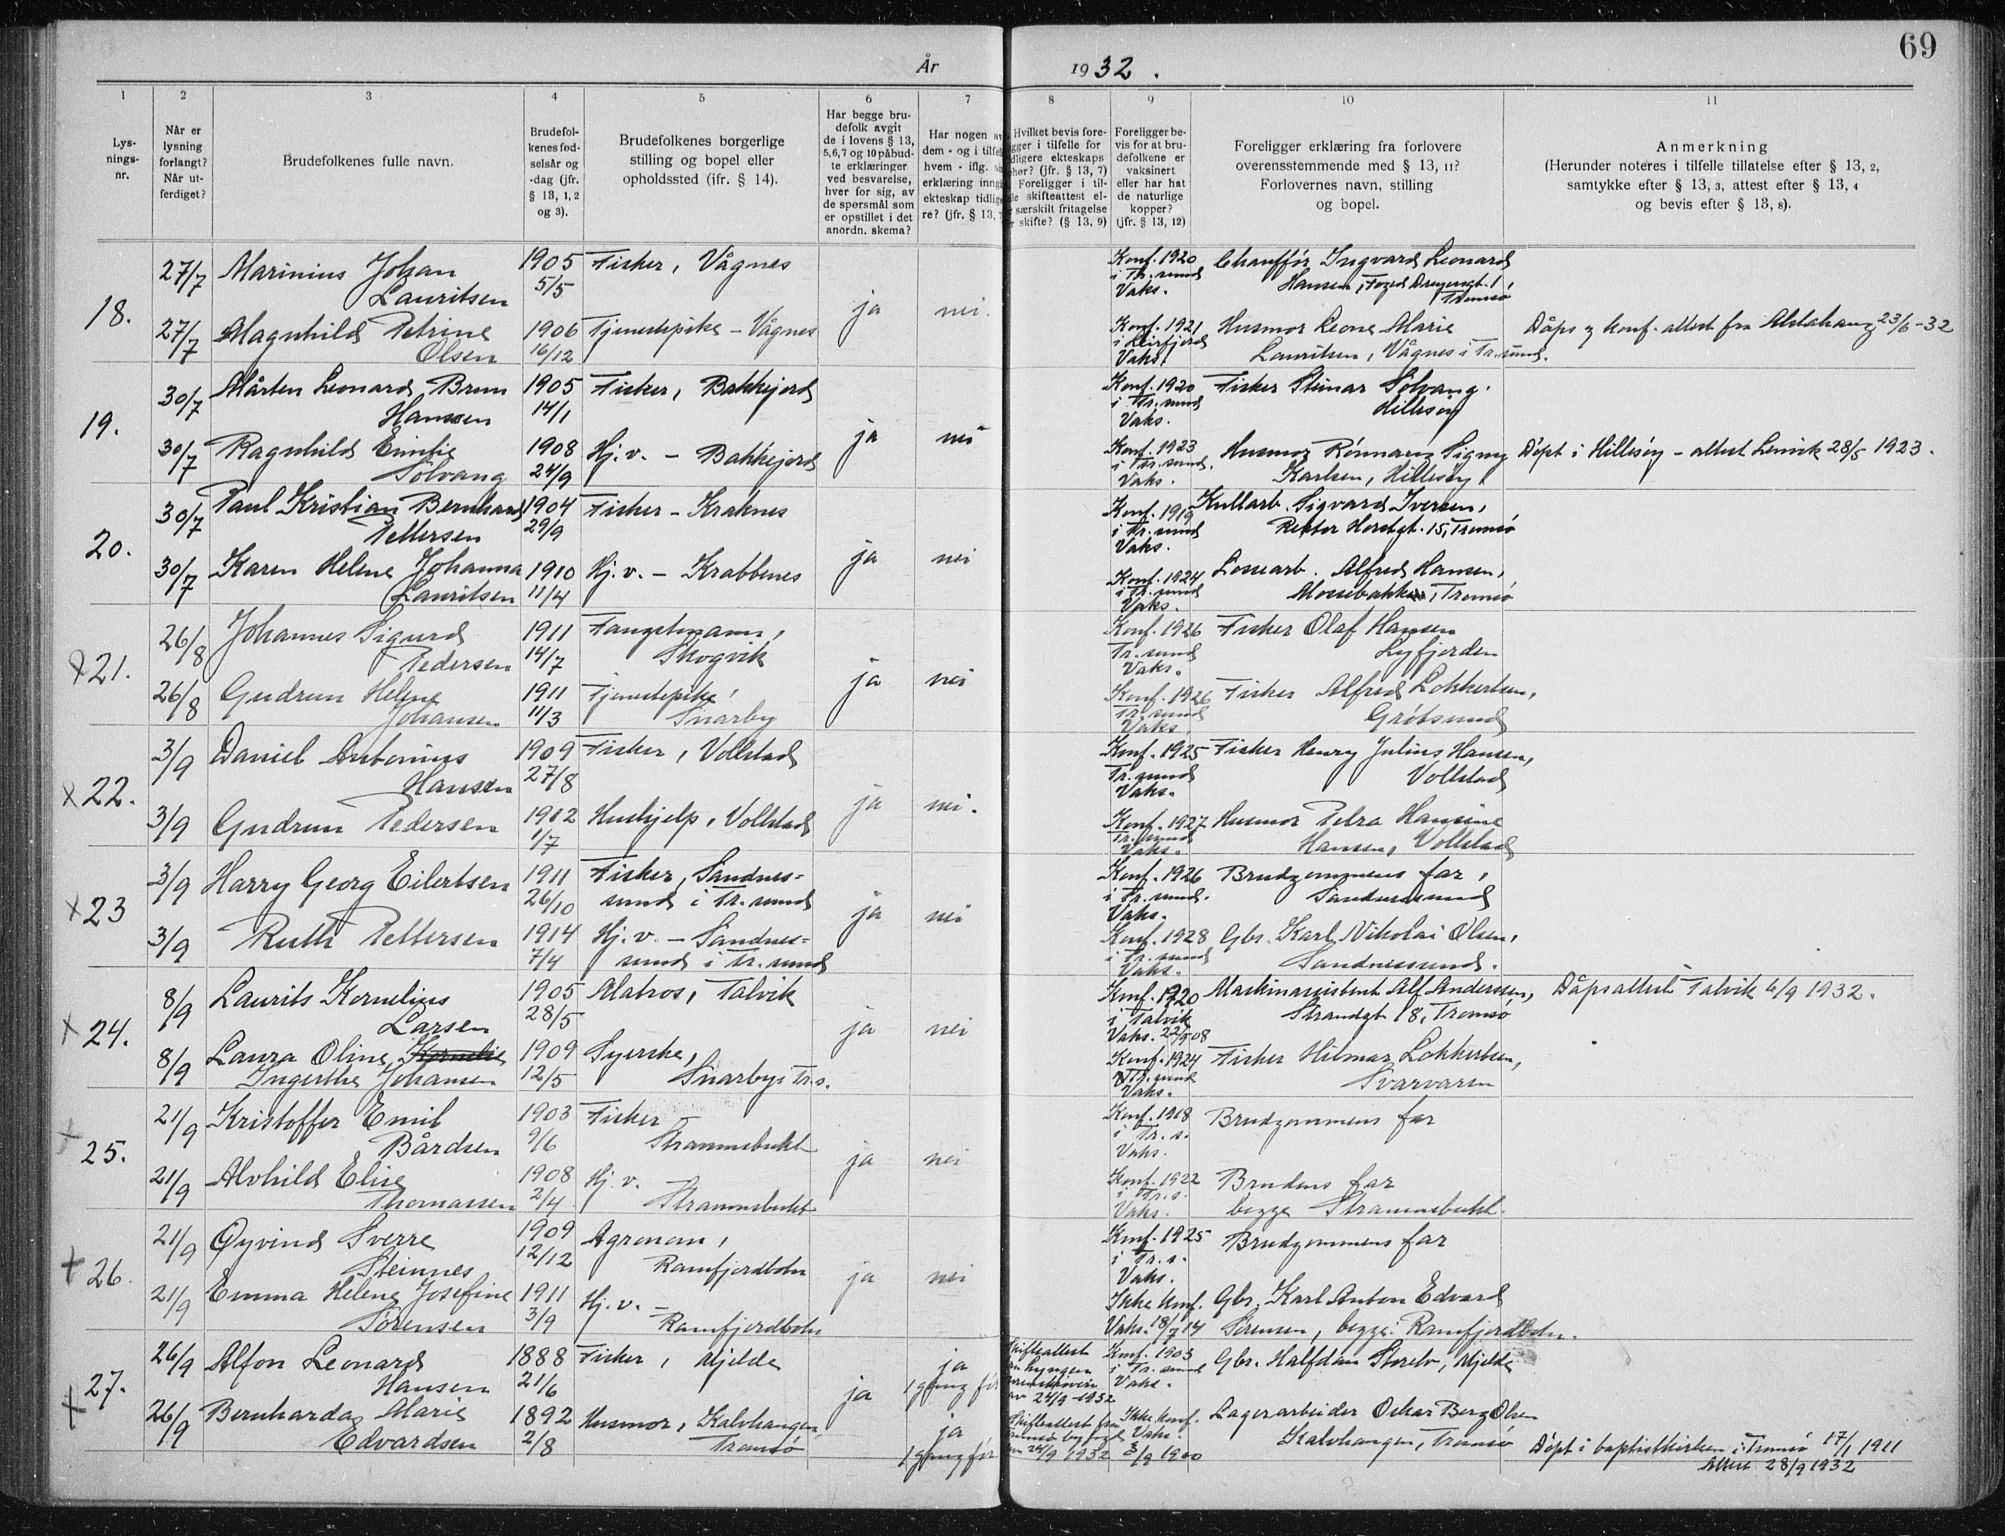 69
År 1932.
1 2 3 4 5 6 7 8 9 10 11
Lys-
nings-
nr.
Når er
lysning
forlangt?
Når ut-
ferdiget?
Brudefolkenes fulle navn.
Brudefol-
kenes fød-
selsår og
-dag (jfr.
§ 13, 1, 2
og 3).
Brudefolkenes borgerlige
stilling og bopel eller
opholdssted (ifr. § 14).
Har begge bru-
defolk avgit
de i lovens § 13,
5,6,7 og 10 påbud-
te erklæringer
ved besvarelse,
hver for sig, av
de spørsmål som
er opstillet i det
anordn. skema?
Har nogen av
dem - og i tilfelle
hvem - iflg.
erklæring inngått
ekteskap tidlige-
re? (jfr. § 13,
Hvilket bevis fore-
ligger i tilfelle for
tidligere ekteskaps
ophør? (jfr. § 13, 7)
Foreligger i til-
felle skifteattest el-
særskilt fritagelse
skifte? (§ 13, 9)
Foreligger be-
vis for at bru-
defolkene er
vaksinert
eller har hat
de naturlige
kopper?
(jfr. § 13, 12)
Foreligger erklæring fra forlovere
overensstemmende med § 13, 11?
Forlovernes navn, stilling
og bopel.
Anmerkning
(Herunder noteres i tilfelle tillatelse efter § 13, 2,
samtykke efter § 13, 3, attest efter § 13, 4
og bevis efter § 13, 8).
18.
27/7 Marinius Johan
Lauritsen
1905
5/5
Fisker, Vågnes
ja nei.
Konf. 1920
i Tr.sund
Vaks.
Chauffør Ingvard Leonard
Hansen,
Tromsø
27/7 Magnhild Petrine
Olsen
1906
16/12
Tjenestepike - Vågnes
Konf. 1921
i Leirfjord
Vaks.
Husmor Leone Marie
Lauritsen, Vågnes i Tr.sund.
Dåps og konf. attest fra Alstahaug 23/6-32
19.
30/7 Mårten Leonard Brun
Hansen
1905
14/1
Fisker, Bakkejord
ja nei
Konf. 1920
i Tr. sund
Vaks.
Fisker Steinar Solvang.
Hillesøy
30/7 Ragnhild Emilie
Solvang
1908
24/9
Hj.v. - Bakkejord
Konf. 1923
i Tr. sund.
Vaks.
Husmor Rønnaug Signy
Karlsen, Hillesøy
Døpt i Hillesøy - attest Lenvik 28/5 1923.
20.
30/7 Paul Kristian Bernhard
Pettersen
1904
29/9
Fisker - Kraknes
ja nei
Konf. 1919
i Tr. sund
Vaks.
Kullarb. Sigvard Iversen,
Rektor Horstgt. 15, Tromsø
30/7 Karen Helene Johanna
Lauritsen
1910
11/4
Hj.v. - Krabbenes
Konf. 1924
i Tr. sund
Vaks.
Lossearb. Alfred Hansen,
Tromsø
x 21.
26/8 Johannes Sigurd
Pedersen
1911
14/7
Fangstmann,
Skogvik
ja nei
Konf. 1926
Tr. sund
Vaks.
Fisker Olaf Hansen
Lyfjorden
26/8 Gudrun Helene
Johansen
1911
11/3
Tjenestepike,
Snarby
Konf. 1926
Tr. sund
Vaks.
Fisker Alfred Lokkertsen,
Grøtsund
x 22.
3/9 Daniel Antonius
Hansen
1909
27/8
Fisker, Vollstad
ja nei.
Konf. 1925
Tr. sund
Vaks.
Fisker Henry Julius Hansen,
Vollstad
3/9 Gudrun Pedersen
1912
1/7
Hushjelp, Vollstad
Konf. 1927
Tr. sund
Vaks.
Husmor Petra Hansine
Hansen, Vollstad
x 23
3/9 Harry Georg Eilertsen
1911
26/10
Fisker, Sandnes-
sund i Tr. sund
ja nei
Konf. 1926
i Tr. sund.
Vaks.
Brudgommens far,
Sandnessund
3/9 Ruth Pettersen
1914
7/4
Hj.v. - Sandnes-
sund i Tr. sund
Konf. 1928
i Tr. sund
Vaks.
Gbr. Karl Nikolai Olsen,
Sandnessund.
x 24.
8/9 Laurits Kornelius
Larsen
1905
28/5
Matros, Talvik
ja nei
Konf. 1920
i Talvik
Vaks. 22/9 08
Maskinassistent Alf Anderssen,
Strandgt 18, Tromsø
Dåpsattest Talvik 6/9 1932.
8/9 Laura Oline Kornelie
Ingerthe Johansen
1909
12/5
Syerske,
Snarby i Tr.s.
Konf. 1924
i Tr. sund
Vaks.
Fisker Hilmar Lokkertsen,
Svarvaren
x 25.
21/9 Kristoffer Emil
Bårdsen
1903
9/6
Fisker -
Straumsbukt
ja nei
Konf. 1918
i Tr. s.
Vaks.
Brudgommens far
21/9 Alvhild Elise
Thomassen
1908
2/4
Hj.v.
Straumsbukt
Konf. 1922
i Tr.s.
Vaks.
Brudens far
begge Straumsbukt.
+ 26.
21/9 Øyvind Sverre
Steinnes
1909
12/12
Agronom,
Ramfjordbotn
ja nei
Konf. 1925
i Tr. s.
Vaks.
Brudgommens far
21/9 Emma Helene Josefine
Sørensen
1911
3/9
Hj.v. -
Ramfjordbotn
Ikke konf.
Vaks. 18/7 14
Gbr. Karl Anton Edvard
Sørensen, begge: Ramfjordbotn.
+ 27.
26/9 Alfon Leonard
Hansen
1888
21/6
Fisker, Mjelde
ja
ja
1 gang før
Skifteattest
Lyngen
24/9-1932
Konf. 1903
i Tr. sund
Vaks.
Gbr. Halfdan Storelv, Mjelde
26/9 Bernharda Marie
Edvardsen
1892
2/8
Husmor, Kalvhangen,
Tromsø
ja
1 gang før
Skifteattest fra
Tromsø byfogd
24/9 1932
Ikke konf.
Vaks.
3/9 1900
Lagerarbeider Oskar Berg Olsen
Kalvhangen, Tromsø
Døpt i baptistkirken i Tromsø 17/1 1911
Attest 28/9 1932